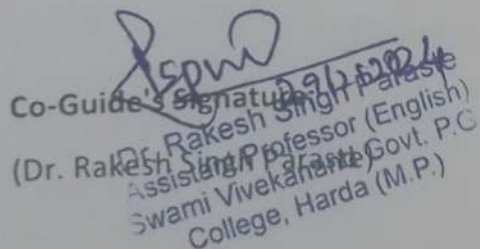 Co-Guide's Signature
(Dr. Rakesh Singh Paraste)
Dr. Rakesh Singh Paraste
Assistant Professor (English)
Swami Vivekanand Govt. P.G
College, Harda (M.P.)